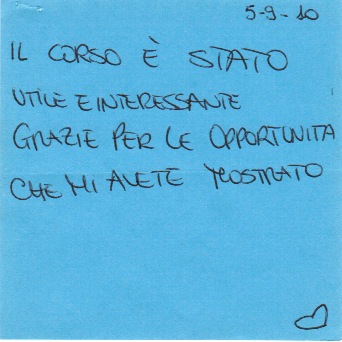 5-9-10
IL CORSO È STATO
UTILE E INTERESSANTE
GRAZIE PER LE OPPORTUNITA
CHE MI AVETE MOSTRATO